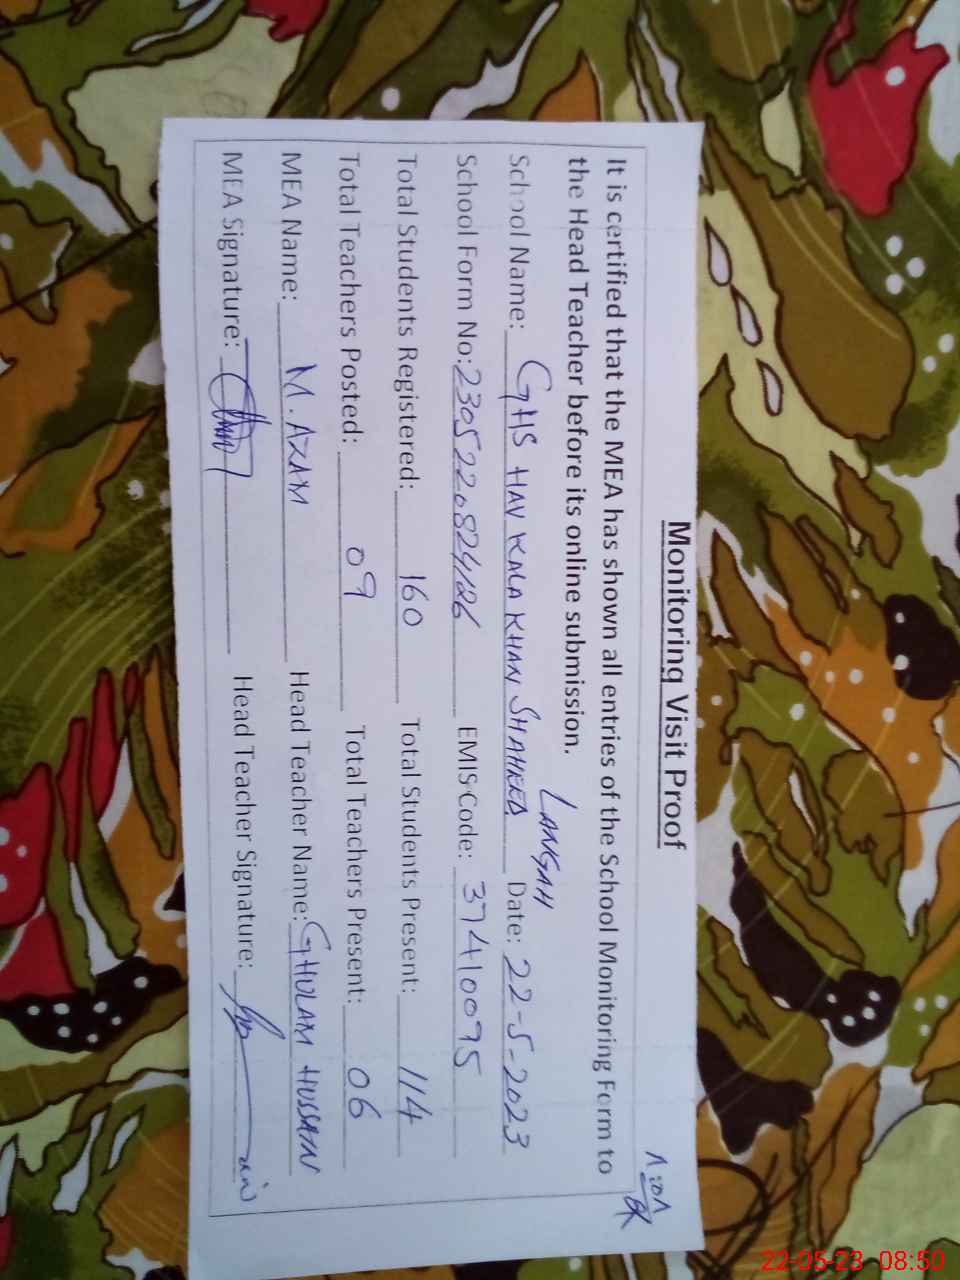 Monitoring Visit Proof
It is certified that the MEA has shown all entries of the School Monitoring Form to
the Head Teacher before its online submission.
LANGAH
School Name: GHS HAV KALA KHAN SHAHEED Date: 22-5-2023
School Form No: 230522082426 EMIS Code: 37410095
Total Students Registered: 160 Total Students Present: 114
Total Teachers Posted: 09 Total Teachers Present: 06
MEA Name: M. AZAM Head Teacher Name: GHULAM HUSSAIN
MEA Signature: Head Teacher Signature:
22-05-23 08:50